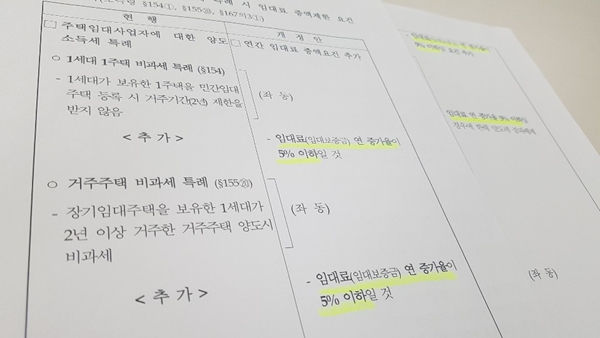 특례 시 임대료 증액제한 요건
§154①, §155⑳, §167의3①)
현 행
개 정 안
□ 주택임대사업자에 대한 양도
소득세 특례
□ 연간 임대료 증액요건 추가
○ 1세대 1주택 비과세 특례 (§154)
- 1세대가 보유한 1주택을 민간임대
주택 등록 시 거주기간(2년) 제한을
받지 않음
(좌 동)
< 추 가 >
- 임대료(임대보증금) 연 증가율이
5% 이하일 것
○ 거주주택 비과세 특례 (§155⑳)
- 장기임대주택을 보유한 1세대가
2년 이상 거주한 거주주택 양도시
비과세
(좌 동)
< 추 가 >
- 임대료(임대보증금) 연 증가율이
5% 이하일 것
요건 추가
임대료 연 증가율
(좌 동)